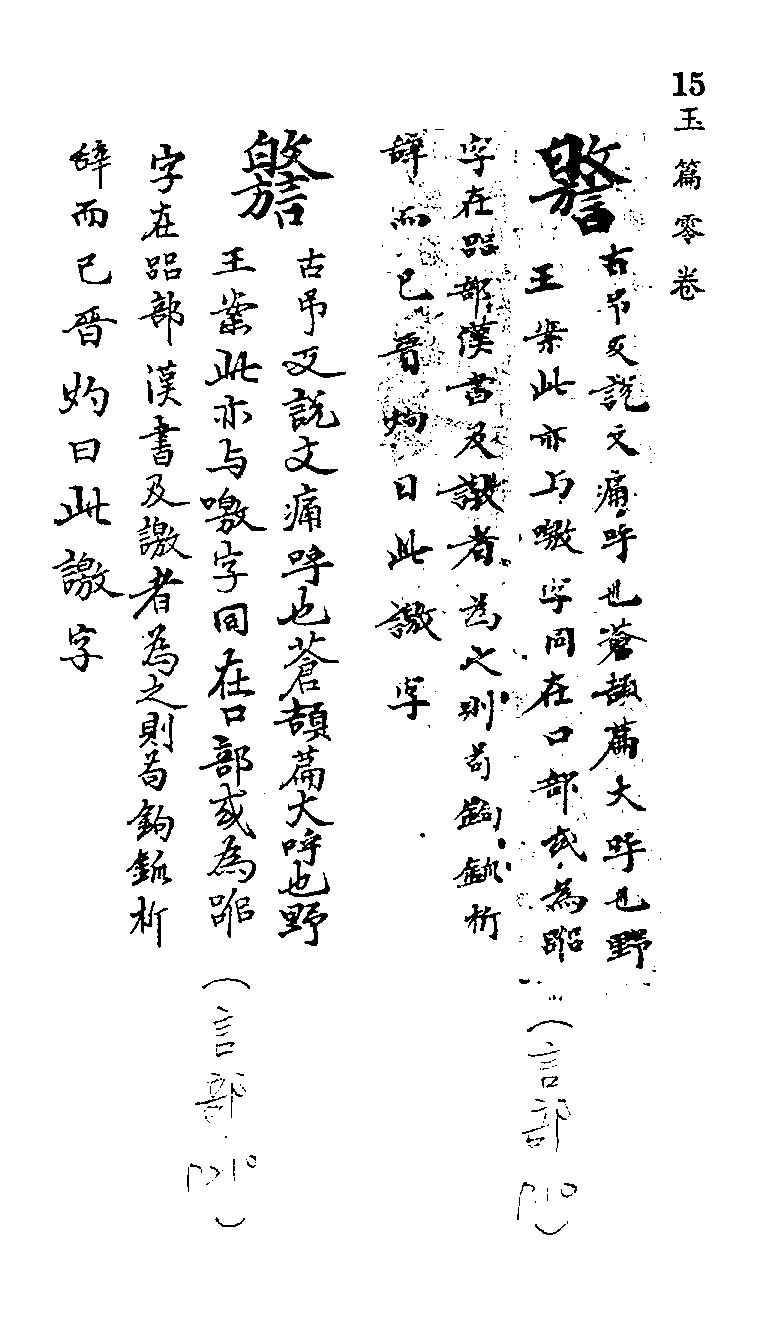 15 玉篇零卷
警
古吊反說文痛呼也蒼頡篇大呼也野
王案此亦与噭字同在口部或為㗊
字在㗊部漢書及譤者為之則苟鉤鈲析
辞而已晋灼曰此譤字
(言部 P10)
警
古吊反說文痛呼也蒼頡篇大呼也野
王案此亦与噭字同在口部或為㗊
字在㗊部漢書及譤者為之則苟鉤鈲析
辞而已晋灼曰此譤字
(言部 P210)